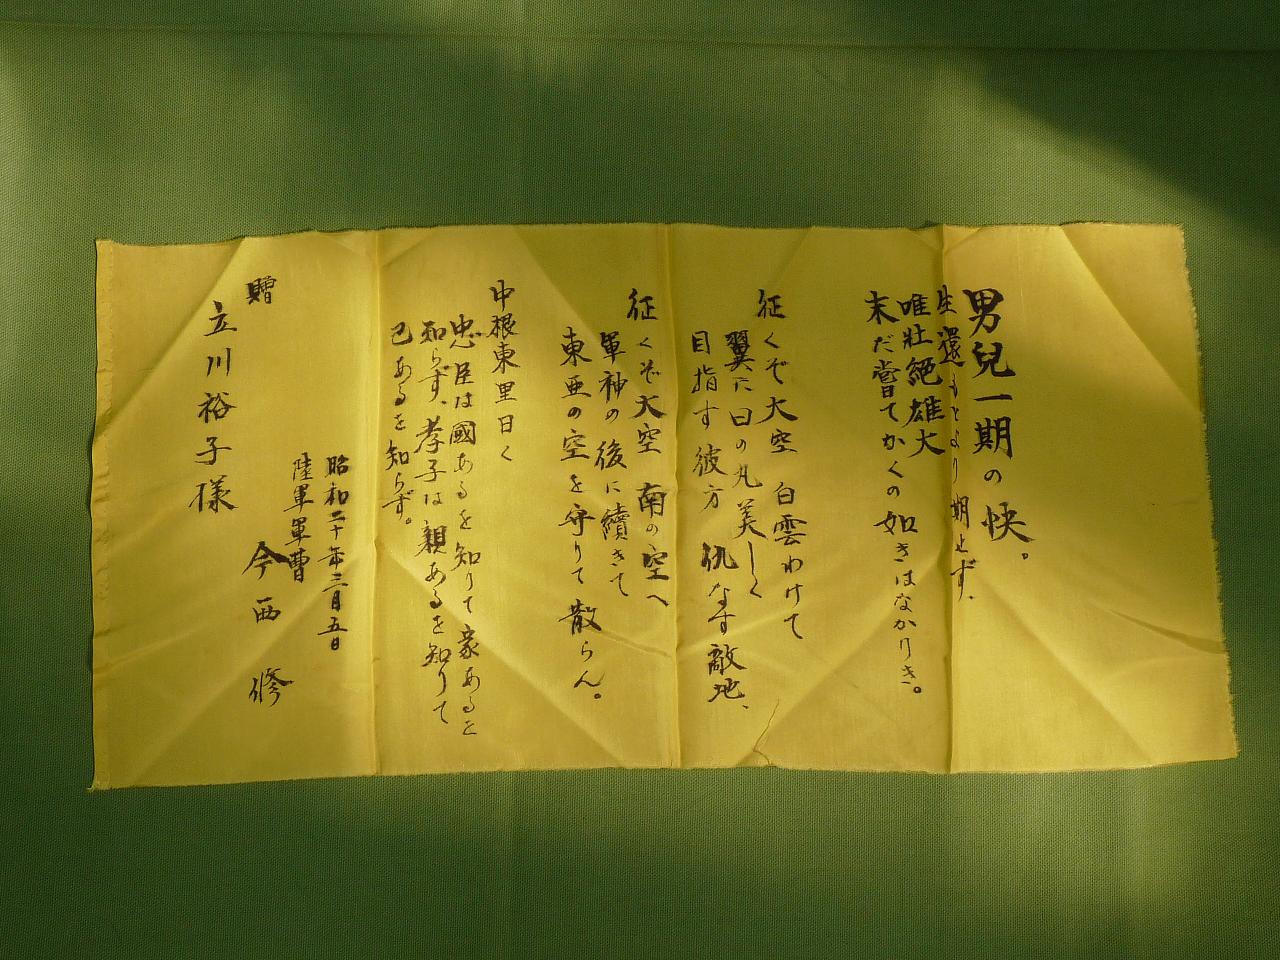 男兒一期の快。
生還もとより期せず、
唯壯絕雄大
末だ嘗てかくの如きはなかりき。
征くぞ大空 白雲わけて
翼に日の丸美しく
目指す彼方 仇なす敵地、
征くぞ大空 南の空へ
軍神の後に續きて
東亜の空を守りて散らん。
中根東里曰く
忠臣は國あるを知りて家あるを
知らず、孝子は親あるを知りて
己あるを知らず。
昭和二十年三月五日
陸軍軍曹
今西 修
贈
立川裕子様